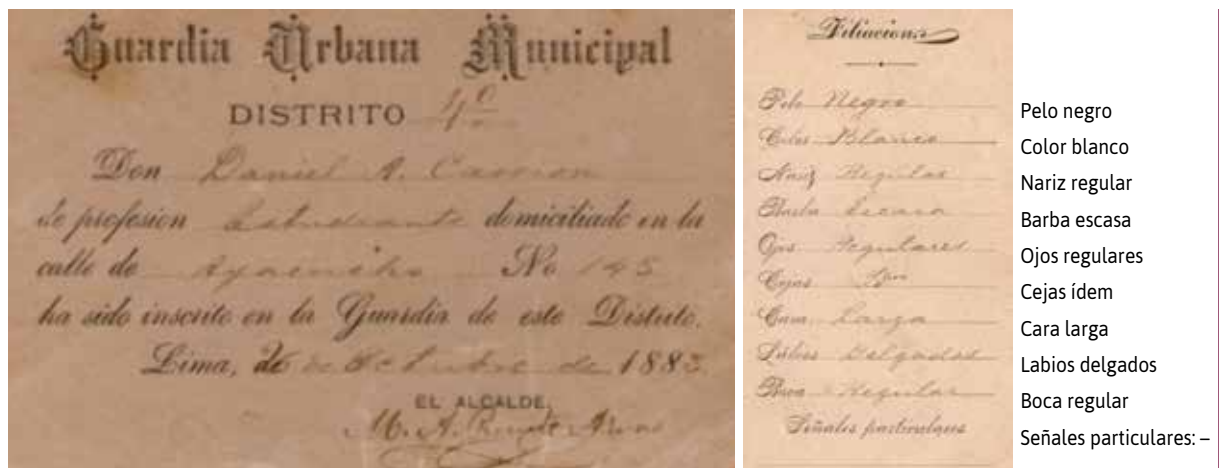 Guardia Urbana Municipal
DISTRITO 4º
Don Daniel A. Carrion
de profesion Estudiante domiciliado en la
calle de Ayacucho No 145
ha sido inscrito en la Guardia de este Distrito.
Lima, 26 de Octubre de 1883
EL ALCALDE,
M. A.
Filiacion
Pelo Negro
Color Blanco
Nariz Regular
Barba Escasa
Ojos Regulares
Cejas
Cara Larga
Labios Delgados
Boca Regular
Señales particulares
Pelo negro
Color blanco
Nariz regular
Barba escasa
Ojos regulares
Cejas ídem
Cara larga
Labios delgados
Boca regular
Señales particulares: –